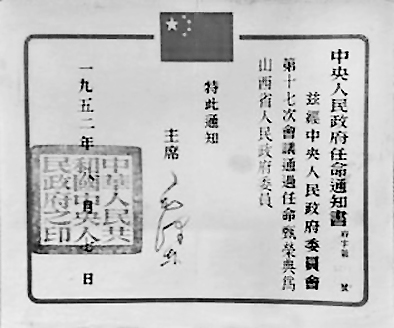 中央人民政府任命通知書
府字第 號
茲經中央人民政府委員會
第十七次會議通過任命甄榮典爲
山西省人民政府委員
特此通知
主席 毛澤東
一九五二年八月 七日
中華人民共
和國中央人
民政府之印